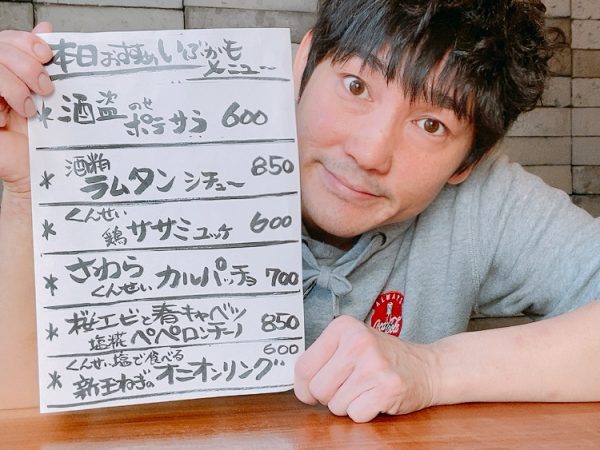 本日おすすめいぶかも
メニュー
* 酒盗のせ
ポテサラ 600
* 酒粕
ラムタンシチュー 850
* くんせい
鶏ササミユッケ 600
* さわら
くんせい カルパッチョ 700
* 桜エビと春キャベツ
塩糀ペペロンチーノ 850
* くんせい塩で食べる 600
新玉ねぎのオニオンリング
ALWAYS
Coca-Cola